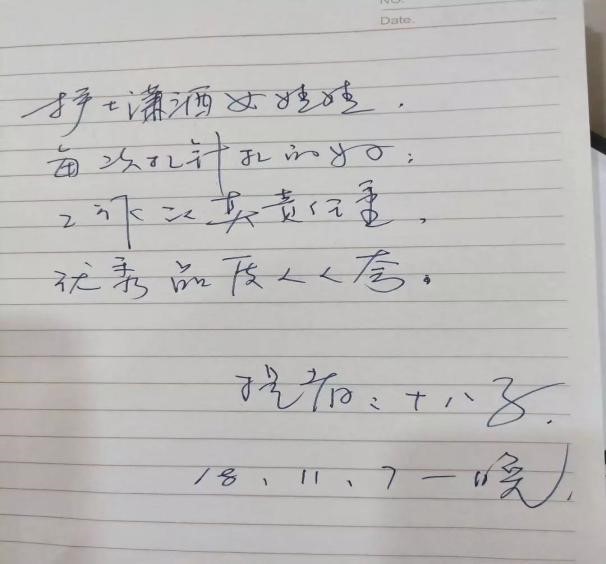 NO.
Date.
护士潇洒女娃娃.
每次扎针扎的好;
工作认真责任重,
优秀品质人人夸.
十八子.
18、11、7一晚.